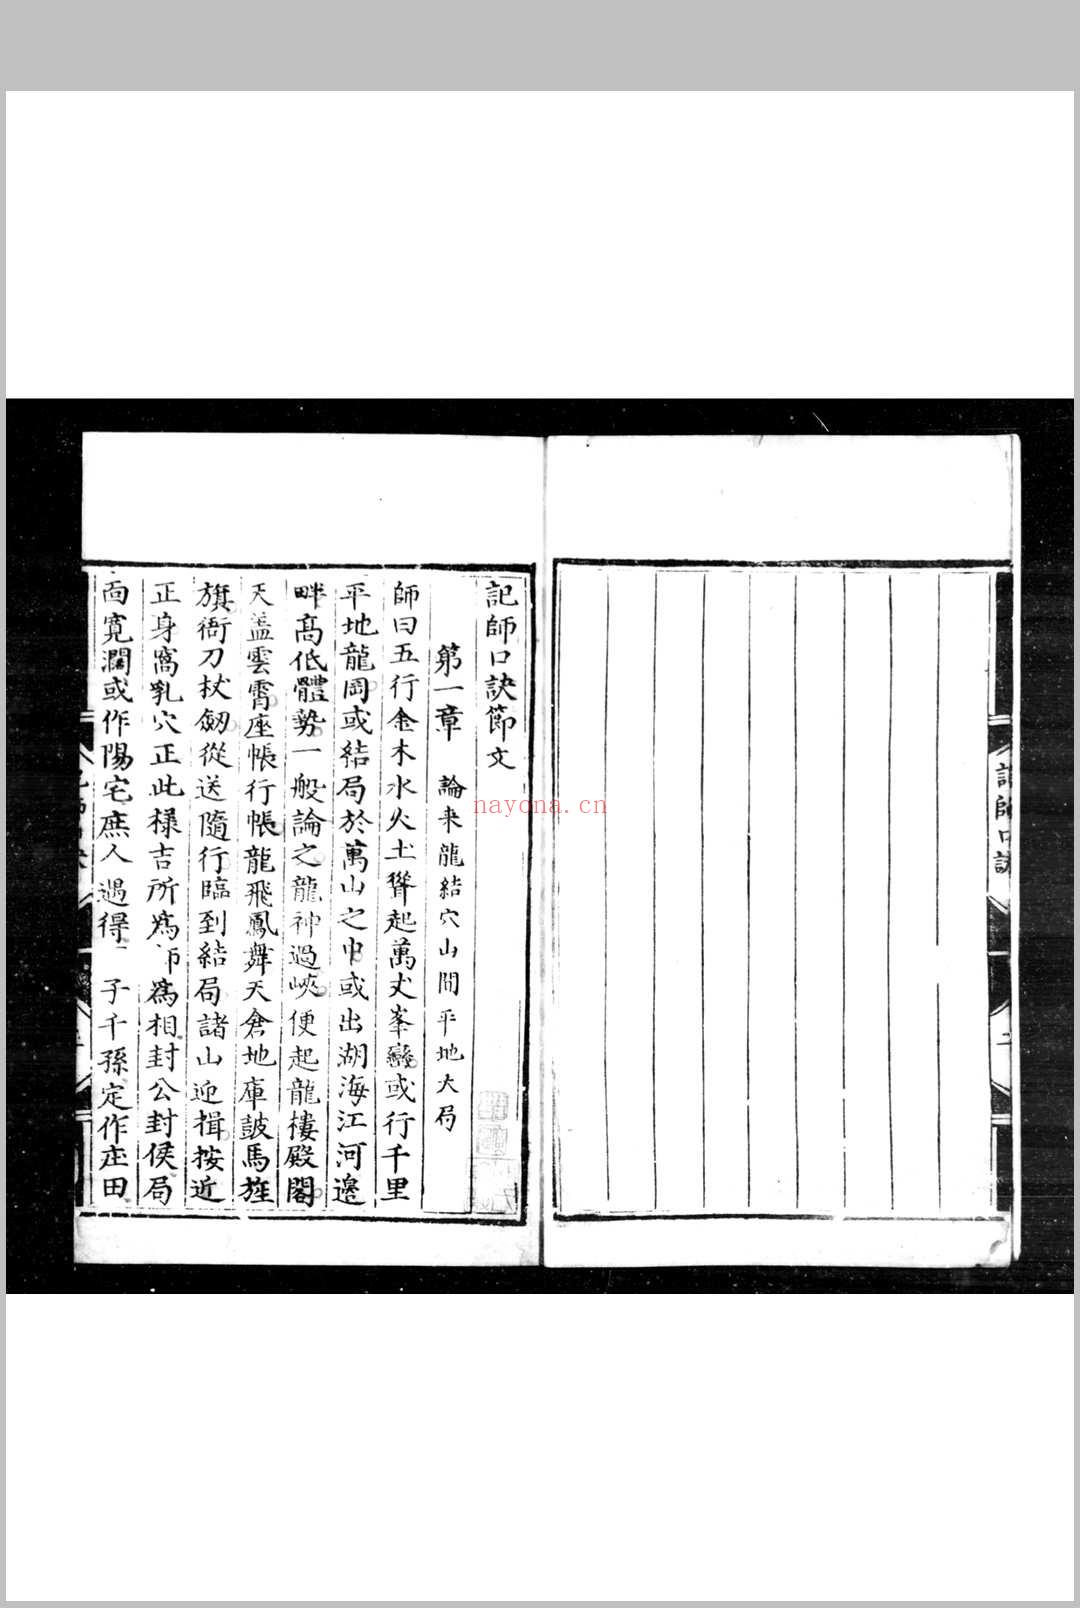 記師口訣節文
第一章 論来龍結穴山間平地大局
師曰五行金木水火土聳起萬丈峯巒或行千里
平地龍岡或結局於萬山之中或出湖海江河邊
畔高低體勢一般論之龍神過峽便起龍樓殿閣
天盖雲霄座帳行帳龍飛鳳舞天倉地庫皷馬旌
旗衙刀杖劒從送隨行臨到結局諸山迎揖按近
正身窩乳穴正此様吉所為師為相封公封侯局
面寛濶或作陽宅庶人遇得 子千孫定作庄田
記師口訣
nayona.cn